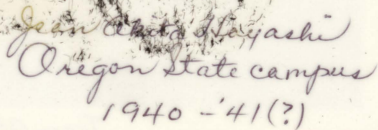 Jean Akita Hayashi
Oregon State campus
1940 - '41(?)